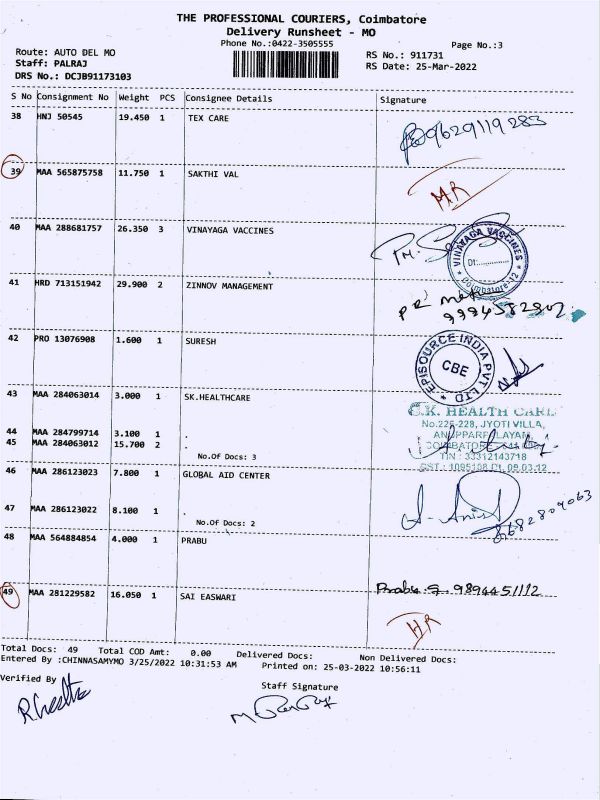 THE PROFESSIONAL COURIERS, Coimbatore
Delivery Runsheet - MO
Phone No.:0422-3505555
Page No.:3
Route: AUTO DEL MO
RS No.: 911731
Staff: PALRAJ
RS Date: 25-Mar-2022
DRS No.: DCJB91173103
S No Consignment No Weight PCS Consignee Details Signature
38 HNJ 50545 19.450 1 TEX CARE
9629119283
39 MAA 565875758 11.750 1 SAKTHI VAL
40 MAA 288681757 26.350 3 VINAYAGA VACCINES
VINAYAGA VACCINES
Dt:
Coimbatore-12
41 HRD 713151942 29.900 2 ZINNOV MANAGEMENT
42 PRO 13076908 1.600 1 SURESH
EPISOURCE INDIA PVT LTD
CBE
43 MAA 284063014 3.000 1 SK.HEALTHCARE
HEALTH CARE
No.225-228, JYOTI VILLA,
44 MAA 284799714 3.100 1 .
45 MAA 284063012 15.700 2 .
TIN : 33312143718
No.Of Docs: 3
46 MAA 286123023 7.800 1 GLOBAL AID CENTER
47 MAA 286123022 8.100 1 .
No.Of Docs: 2
48 MAA 564884854 4.000 1 PRABU
Prabu. S. 9894451112
49 MAA 281229582 16.050 1 SAI EASWARI
Total Docs: 49 Total COD Amt: 0.00 Delivered Docs: Non Delivered Docs:
Entered By :CHINNASAMYMO 3/25/2022 10:31:53 AM Printed on: 25-03-2022 10:56:11
Verified By
Staff Signature